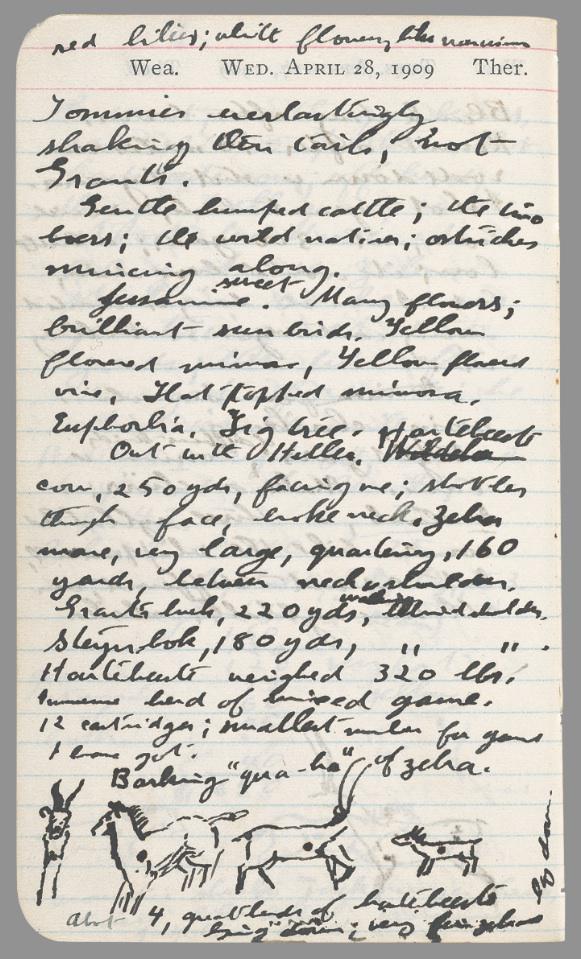 red lilies; white flowers like narcissus
Wea. WED. APRIL 28, 1909 Ther.
Tommies everlastingly
shaking their tails; not
Grants.
Gentle humped cattle; the
boers; the wild natives; ostriches
mincing along.
Jessamine. sweet Many flowers;
brilliant sun birds. Yellow
flowered mimosa, Yellow flowered
vine, Flat topped mimosa.
Euphorbia. Fig tree.
Out with Heller. Hartebeest
cow, 250 yds, facing me; shot her
through face, broke neck. Zebra
mare, very large, quartering, 160
yards, between neck & shoulder.
Grants buck, 220 yds, walking, behind shoulder.
Steinbok, 180 yds, " " .
Hartebeeste weighed 320 lbs.
Immense herd of mixed game.
12 cartridges; smallest number for game
I have got.
Barking "qua-ha" of zebra.
about 4, great herds of hartebeeste
lying down; very few zebra
lay down.